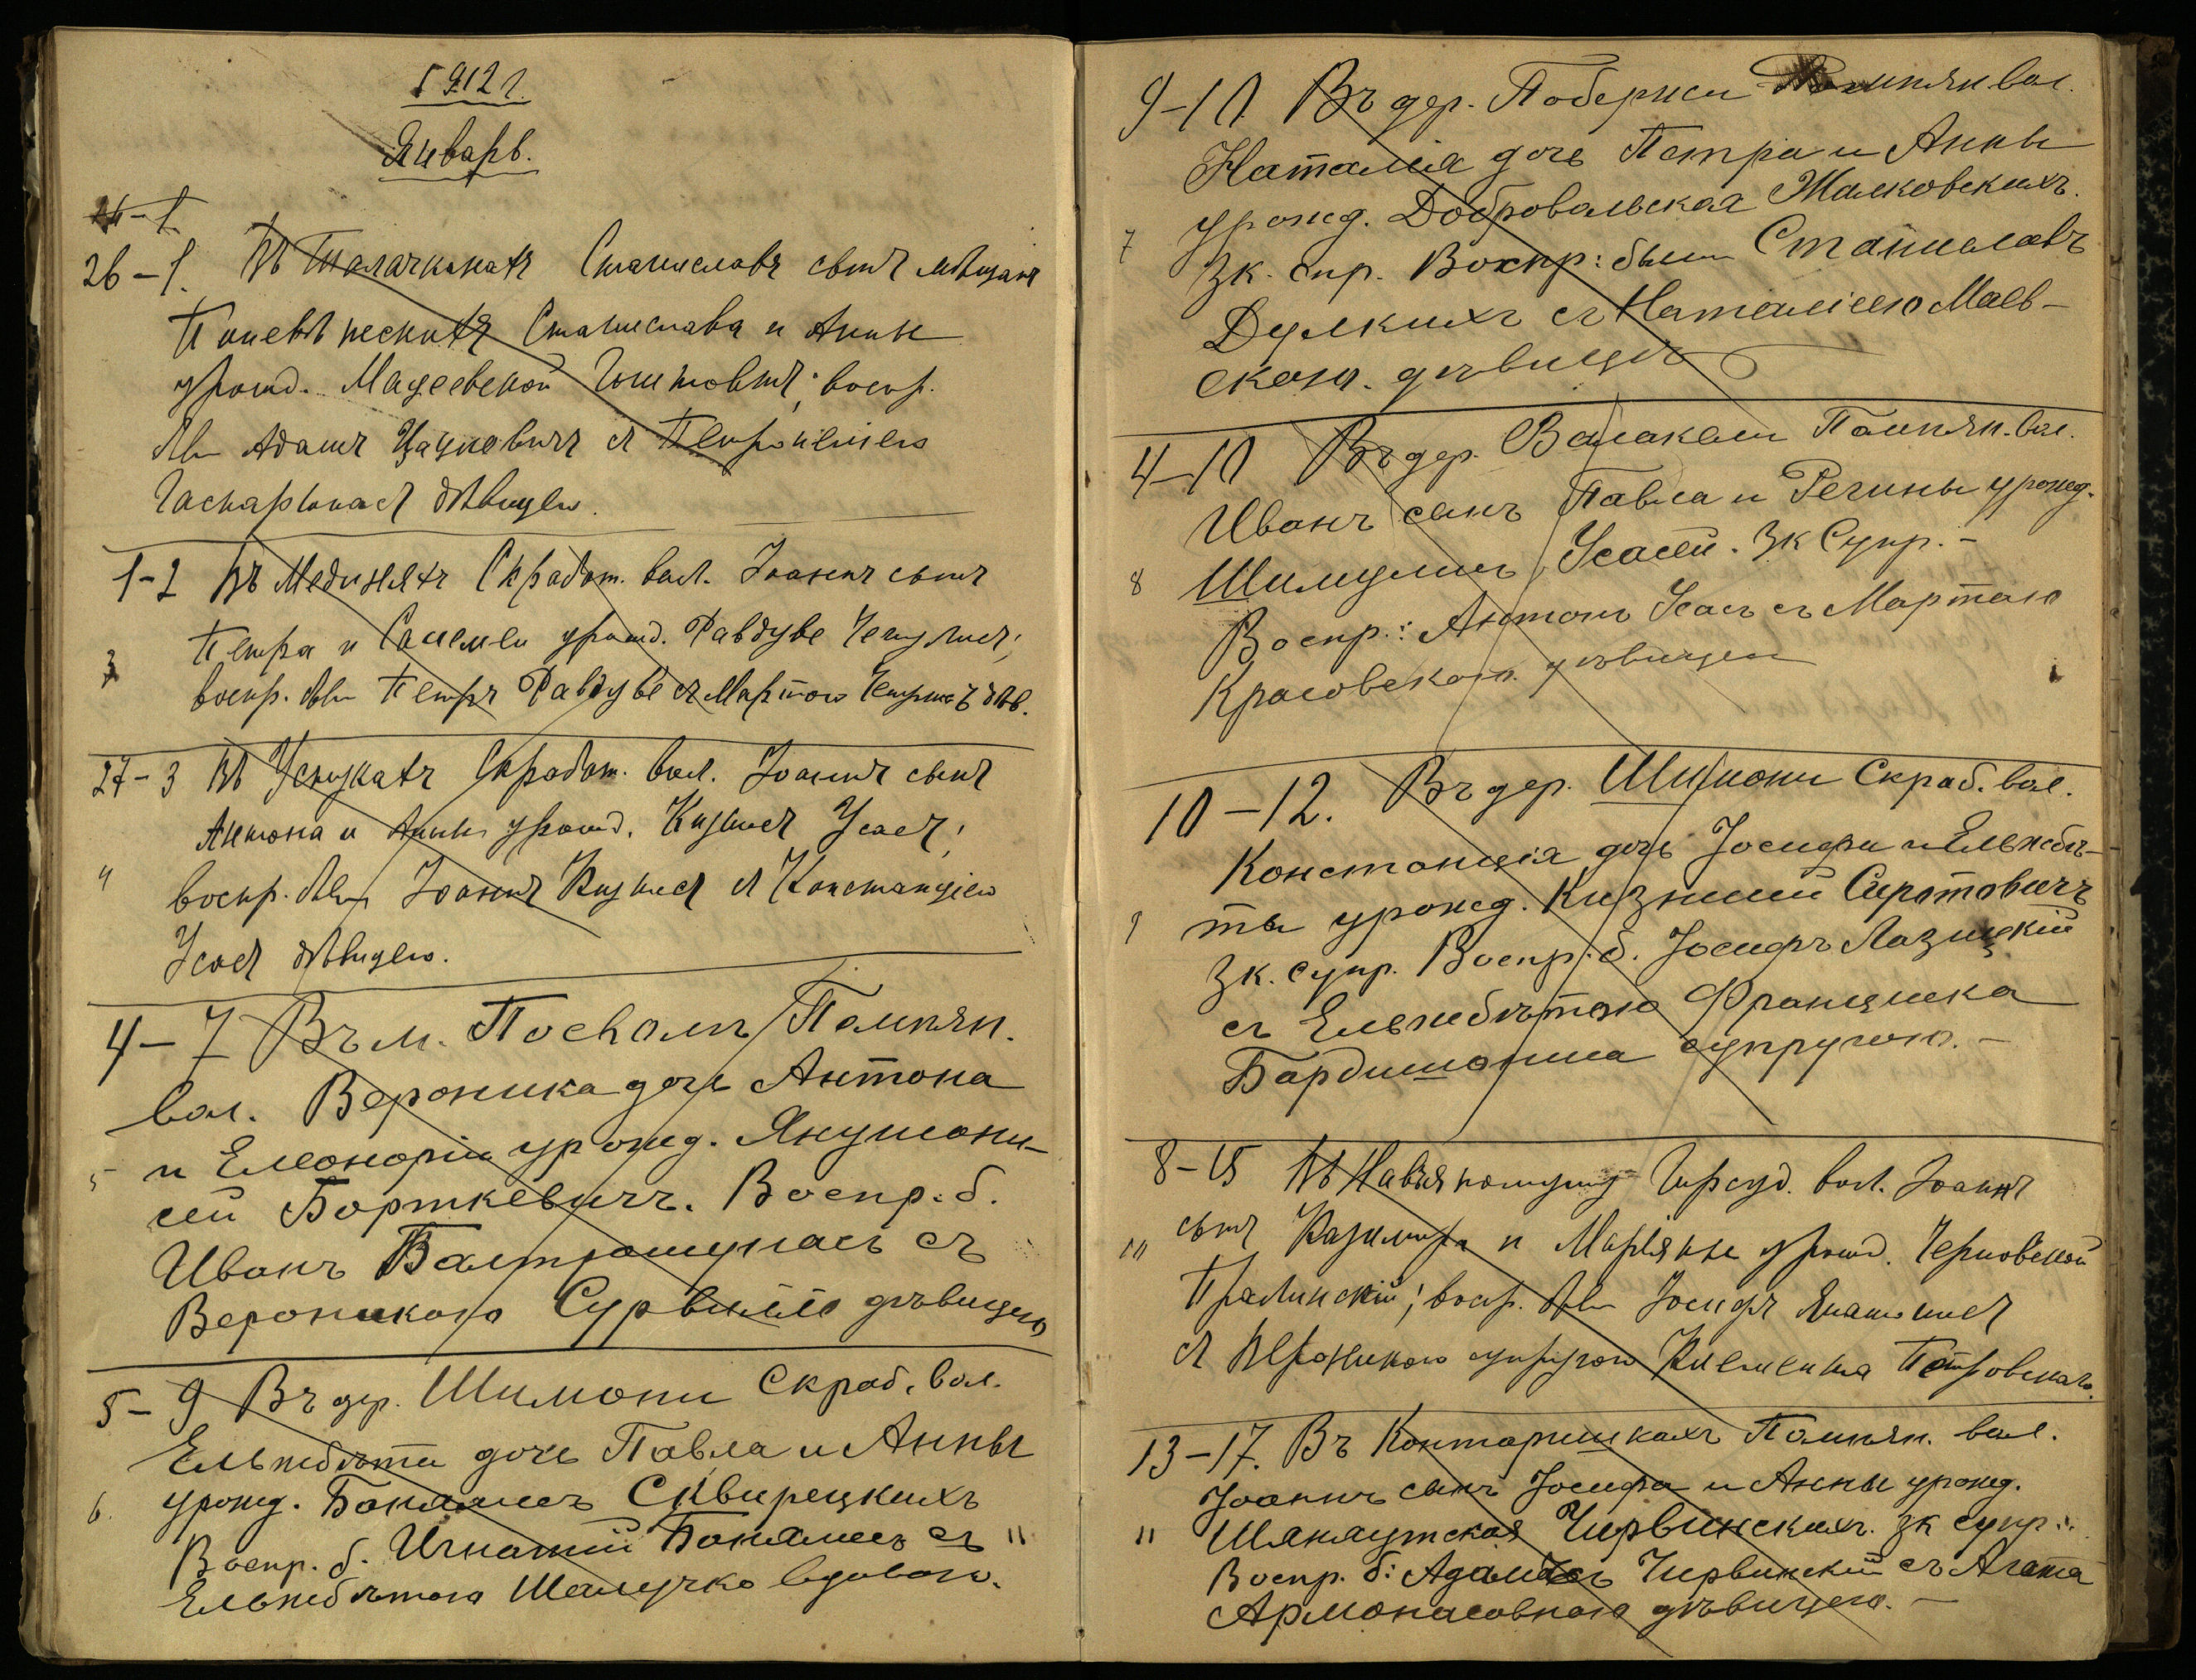 1912 г.
Январь.
26 – 1. Въ Талачканахъ Станиславъ сынъ мѣщанъ
Поневѣжескихъ Станислава и Анны
урожд. Мацеевской Гинтовтъ; воспр.
были Адамъ Цацкевичъ съ Петронелею
Гаспарюнасъ дѣвицею.
1-2 Въ Мединяхъ Скработ. вол. Іоаннъ сынъ
3 Петра и Саломеи урожд. Равдуве
воспр. были Петръ Равдуве съ Мартою дѣв.
27-3 Въ Ускускахъ Скработ. вол. Іоаннъ сынъ
Антона и Анны урожд. Кизнисъ Усасъ;
4 воспр. были Іоаннъ Кизнисъ съ Констанціею
Усасъ дѣвицею.
4 – 7 Въ м. Посколь Помпян.
вол. Вероника дочь Антона
5 и Елеоноріи урожд. Янушони-
сей Борткевичъ. Воспр. б.
Иванъ Балтрошунасъ съ
Вероникою Сурвилло дѣвицею
5 – 9 Въ дер. Шимони Скраб. вол.
Ельжбѣта дочь Павла и Анны
6. урожд. Баналисъ Сквирецкихъ
Воспр. б. Игнатій Баналисъ съ "
Ельжбѣтою Шалучко вдовою.
9-10 Въ дер. Побержи Помпян вол.
Наталія дочь Петра и Анны
урожд. Добровольская Жалковскихъ.
7 Зк. спр. Воспр: были Станиславъ
Дулкихъ съ Наталіею Маев-
скою. дѣвицею
4-10 Въ дер. Валакели Помпян. вол.
Иванъ сынъ Павла и Регины урожд.
8 Шимулисъ Усасей. Зк Супр. –
Воспр.: Антонъ Усасъ съ Мартою
Красовскою дѣвицею
10 – 12. Въ дер. Шимони Скраб. вол.
Констанція дочь Іосифа и Ельжбѣ-
9 ты урожд. Кизнисей Сиротовичъ
Зк. супр. Воспр. б. Іосифъ Лазицкій
съ Ельжбѣтою Францишка
Бардишониса супругою. –
8-15 Въ Гирсуд. вол. Іоаннъ
10 сынъ Казимира и Маріанны урожд. Черновской
Пралинскій; воспр. были Іосифъ
съ Вероникою супругою Климента Петровскаго.
13 – 17. Въ Контаришкахъ Помпян. вол.
Іоаннъ сынъ Іосифа и Анны урожд.
11 Шляхаутская Чирвинскихъ. Зк супр.
Воспр. б: Адамъ Чирвинскій съ Агата
Армонасовною дѣвицею. –